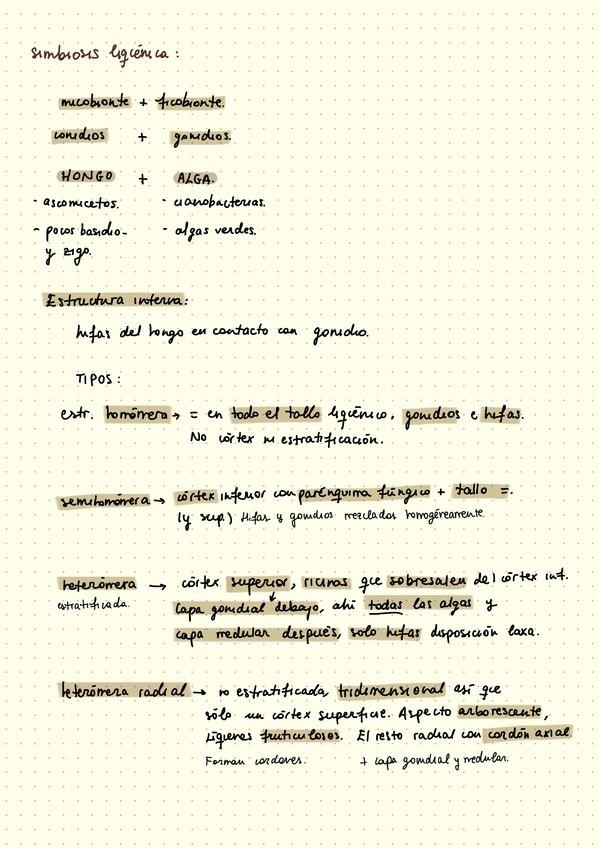 simbiosis liquénica:
micobionte + ficobionte.
conidios + gonidios.
HONGO + ALGA.
- ascomicetos. - cianobacterias.
- pocos basidio- - algas verdes.
y zigo.
Estructura interna:
hifas del hongo en contacto con gonidio.
TIPOS:
estr. homómera → = en todo el tallo liquénico, gonidios e hifas.
No córtex ni estratificación.
semihomómera → córtex inferior con parénquima fúngico + tallo =.
(y sup.) Hifas y gonidios mezclados homogéneamente.
heterómera → córtex superior, ricinas que sobresalen del córtex inf.
estratificada. capa gonidial debajo, ahí todas las algas y
capa medular después, solo hifas disposición laxa.
heterómera radial → no estratificada, tridimensional así que
sólo un córtex superficie. Aspecto arborescente,
Líquenes fruticulosos. El resto radial con cordón axial
Forman cordones. + capa gonidial y medular.